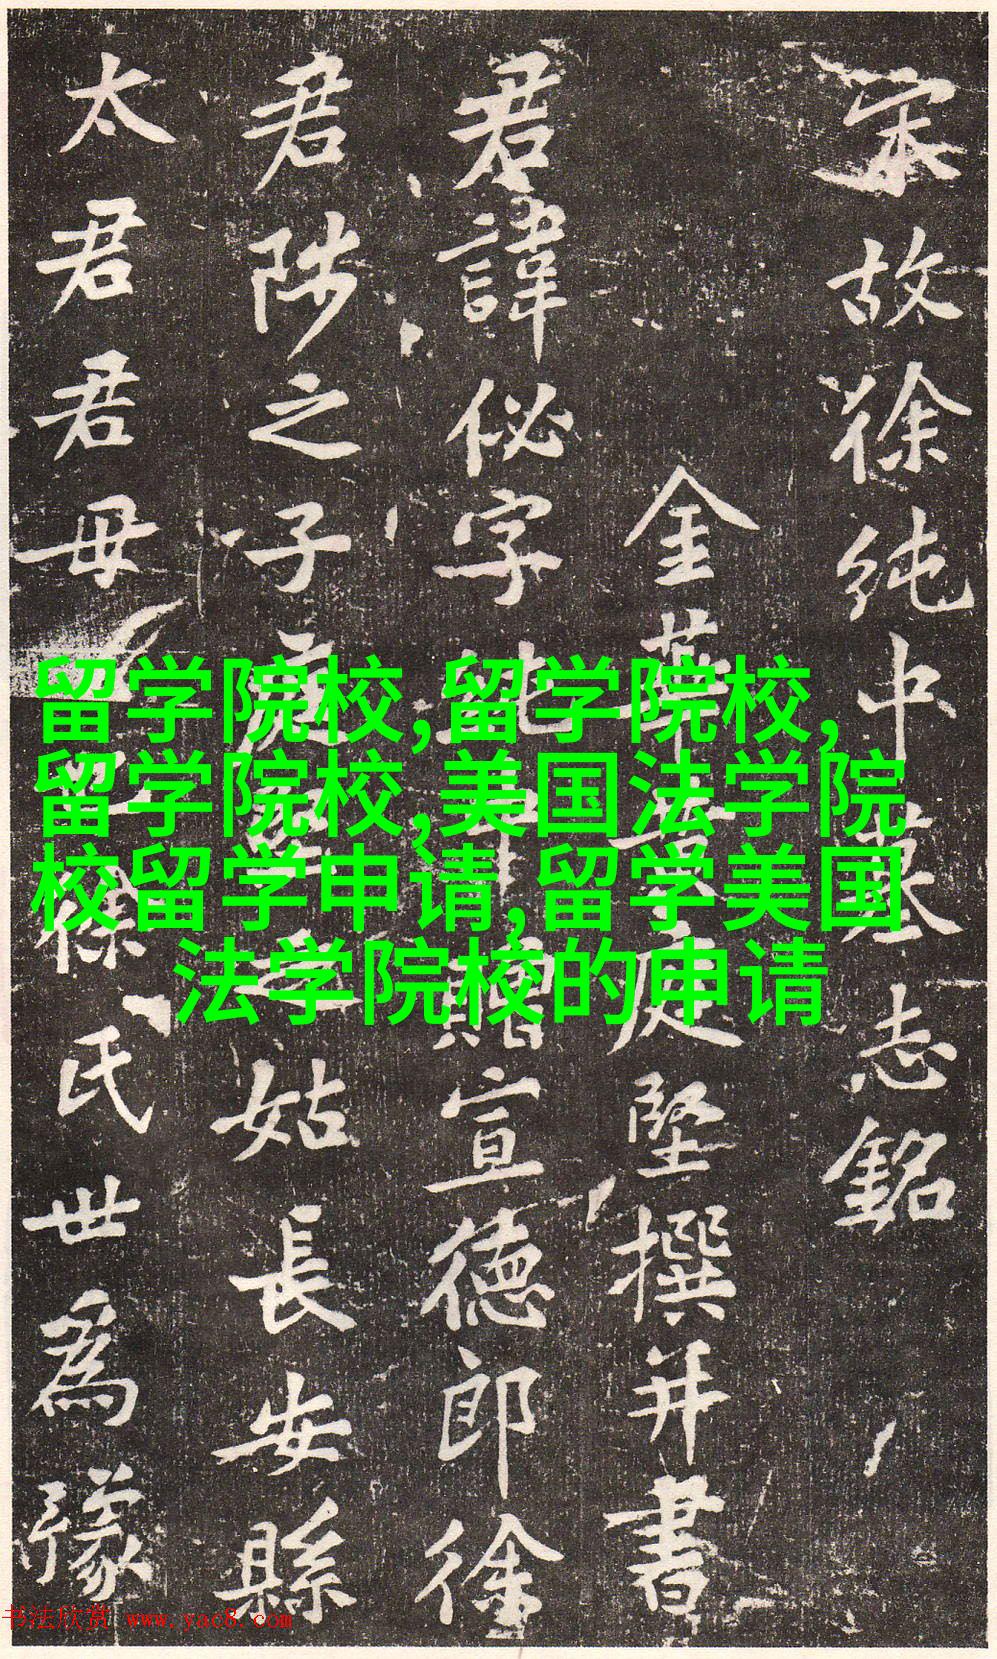 宋故徐纯中墓志銘
金華黄庭堅撰并書
君諱佖字贈宣德郎徐
君陟之子姑長安縣
太君君母氏世為豫
留学院校,留学院校,
留学院校,美国法学院
校留学申请,留学美国
法学院校的申请
书法欣赏 www.yac8.com